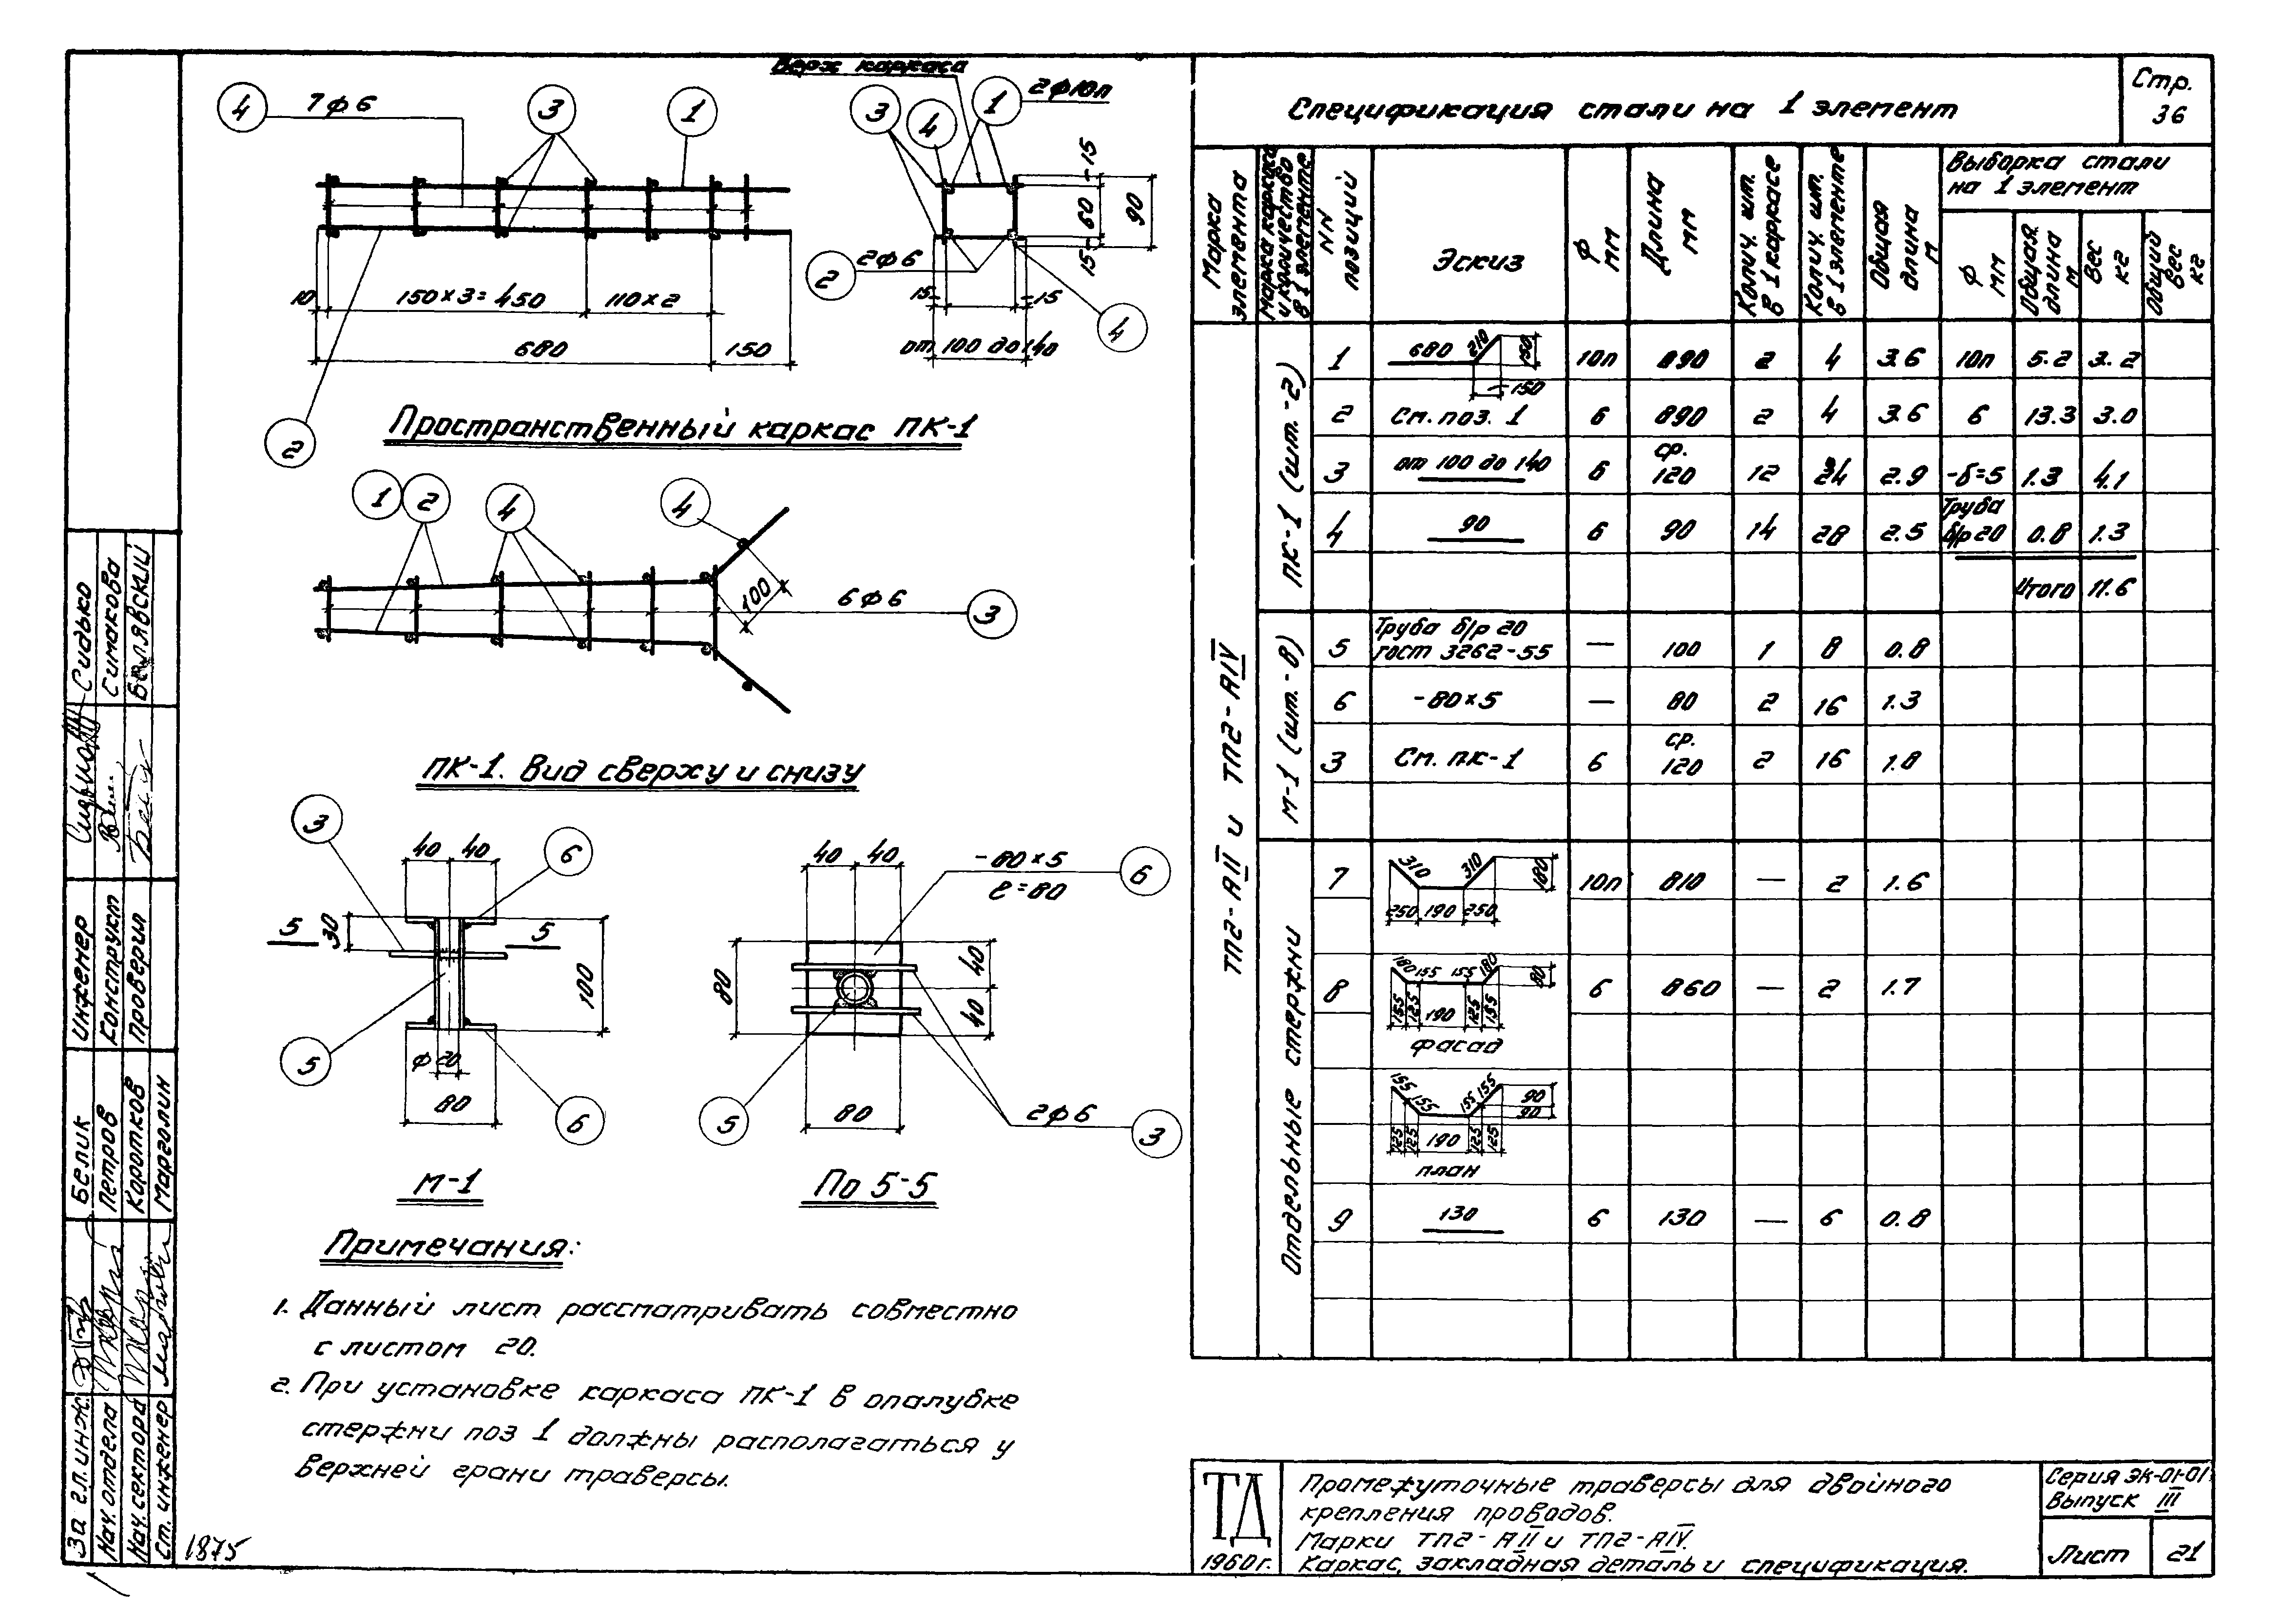 Верх каркаса
4
7ф6
3
1
3
4
1
2ф10п
15
60
90
15
2ф6
2
15
15
4
от 100 до 140
10
150×3=450
110×2
680
150
2
Пространственный каркас ПК-1
1
2
4
4
100
6ф6
3
ПК-1. Вид сверху и снизу
3
40
40
6
5
5
30
100
5
ф20
80
6
М-1
40
40
-80×5
ℓ=80
6
80
40
40
5
80
2ф6
3
По 5-5
Примечания:
1. Данный лист рассматривать совместно
с листом 20.
2. При установке каркаса ПК-1 в опалубке
стержни поз 1 должны располагаться у
верхней грани траверсы.
Спецификация стали на 1 элемент
Стр.
36
Марка элемента
Марка каркаса и количество в 1 элементе
NN позиций
Эскиз
ф мм
Длина мм
Колич. шт. в 1 каркасе
Колич. шт. в 1 элементе
Общая длина м
Выборка стали
на 1 элемент
ф мм
Общая длина м
Вес кг
Общий вес кг
ТП2-АII и ТП2-АIV
ПК-1 (шт.-2)
1 680 210 150 150 10п 890 2 4 3.6 10п 5.2 3.2
2 См. поз. 1 6 890 2 4 3.6 6 13.3 3.0
3 от 100 до 140 6 ср. 120 12 24 2.9 -δ=5 1.3 4.1
4 90 6 90 14 28 2.5 Труба б/р 20 0.8 1.3
Итого 11.6
М-1 (шт.-8)
5 Труба б/р 20 ГОСТ 3262-55 — 100 1 8 0.8
6 -80×5 — 80 2 16 1.3
3 См. ПК-1 6 ср. 120 2 16 1.8
Отдельные стержни
7 310 310 180 250 190 250 10п 810 — 2 1.6
8 180 155 155 180 80 155 125 190 125 155 6 860 — 2 1.7
фасад
155 155 155 155 90 90 125 125 190 125 125
план
9 130 6 130 — 6 0.8
ТД
1960г.
Промежуточные траверсы для двойного
крепления проводов.
Марки ТП2-АII и ТП2-АIV.
Каркас, закладная деталь и спецификация.
Серия ЭК-01-01
Выпуск III
Лист
21
Инженер
Конструкт
Проверил
Сидько
Симакова
Белявский
За гл. инж.
Нач. отдела
Нач. сектора
Ст. инженер
Белик
Петров
Коротков
Марголин
1875